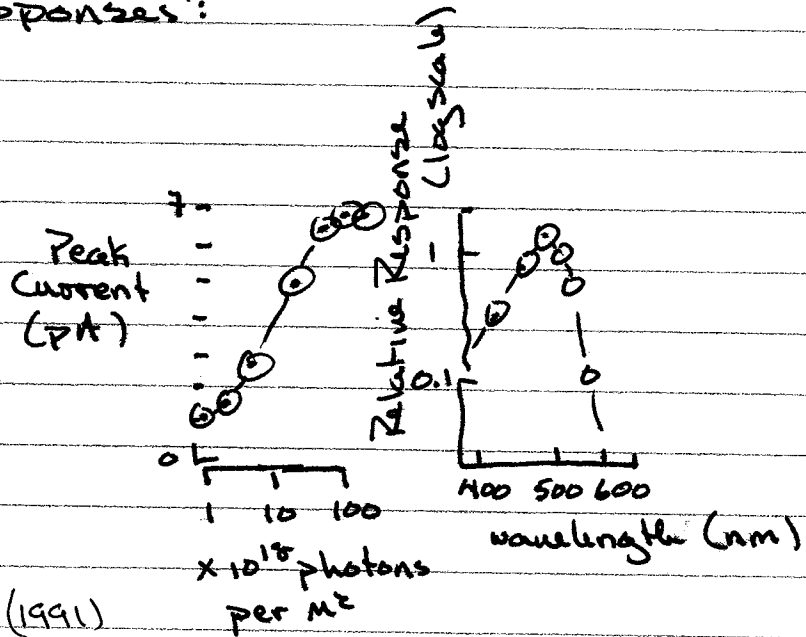 sponses":
7
Peak
Current
(pA)
0
1 10 100
x 10^18 photons
per m²
Relative Response
(log scale)
1
0.1
400 500 600
wavelength (nm)
(1991)